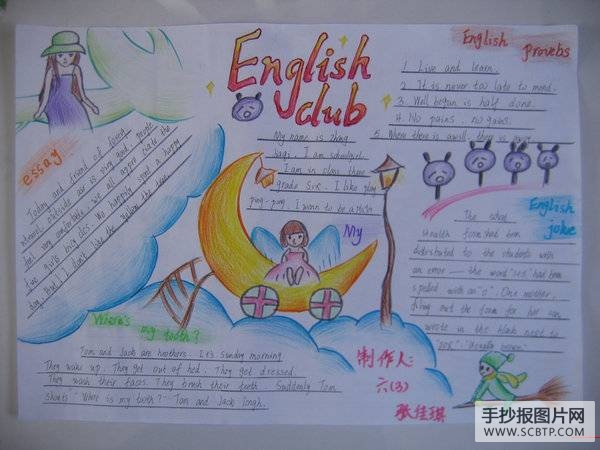 English club
English provebs
1. Live and learn.
2. It is never too late to mend.
3. Well begun is half done.
4. No pains, no gains.
5. Where there is a will, there is away
essay
Today and friend of
outside
feel very comfortable. We all
five girls
day, But I don't like the
My name is Zhang
I am in class three
grade Six. I like play
ping-pong. I wann to be a
My
English joke
The
health form had been
distributed to the students with
an error — the word "sex" had been
spelled with an "o". One mother,
filling out the form for her son,
wrote in the blank next to
Where's my tooth?
Tom and Jack are brothers. It's Sunday morning.
They wake up. They get out of bed. They get dressed.
They wash their faces. They brush their teeth. Suddenly Tom
shouts "Where is my tooth?" Tom and Jack laugh.
制作人:
六(3)
张佳琪
手抄报图片网
WWW.SCBTP.COM